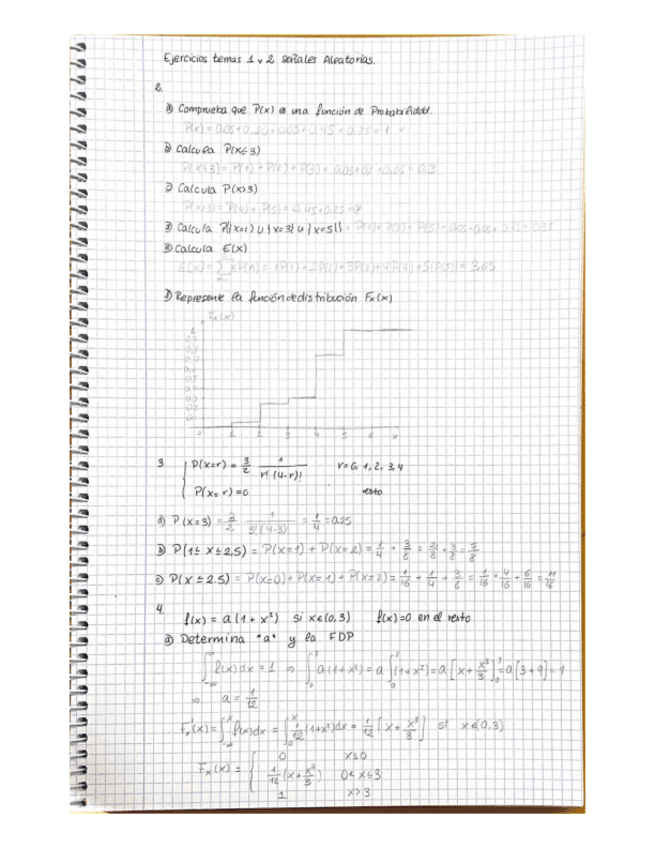 Ejercicios temas 1 y 2 señales Aleatorias.
2.
a) Comprueba que P(x) es una función de Probabilidad.
P(x) = 0.05+0.20+0.05+0.45+0.25=1
b) Calcula P(x≤3)
P(x≤3) = P(1) + P(2) + P(3) = = 0.3
c) Calcula P(x>3)
P(x>3) = P(4) + P(5) = 0.45+0.25
d) Calcula P({x=1} ∪ {x=3} ∪ {x=5}) = P(1)+ P(3)+ P(5)=
e) Calcula E(x)
E(x) = = 1P(1) + 2P(2) + 3P(3) + 4P(4) + 5P(5) = 3,65
f) Represente la función de distribución Fx(x)
Fx(x)
0 1 2 3 4 5 6 x
3 P(x=r) = 3/2 1/(r!(4-r)!) r=0, 1, 2, 3, 4
P(x=r)=0 resto
a) P(x=3) = 3/2 1/(3!(4-3)!) = 1/4 = 0.25
b) P(1≤x≤2,5) = P(x=1) + P(x=2) = 1/4 + 3/8 = 2/8 + 3/8 = 5/8
c) P(x≤2.5) = P(x=0) + P(x=1) + P(x=2) = 1/16 + 1/4 + 3/8 = 1/16 + 4/16 + 6/16 = 11/16
4. f(x) = a(1+x²) si x∈(0,3) f(x)=0 en el resto
a) Determina "a" y la FDP
∫f(x)dx = 1 ⇒ ∫a(1+x²) = a∫(1+x²) = a[x + x³/3] = a[3+9] = 1
⇒ a = 1/12
Fx(x) = ∫f(x)dx = ∫1/12(1+x²)dx = 1/12[x + x³/3] si x∈(0,3)
Fx(x) = { 0 x≤0
1/12(x + x³/3) 0<x≤3
1 x>3